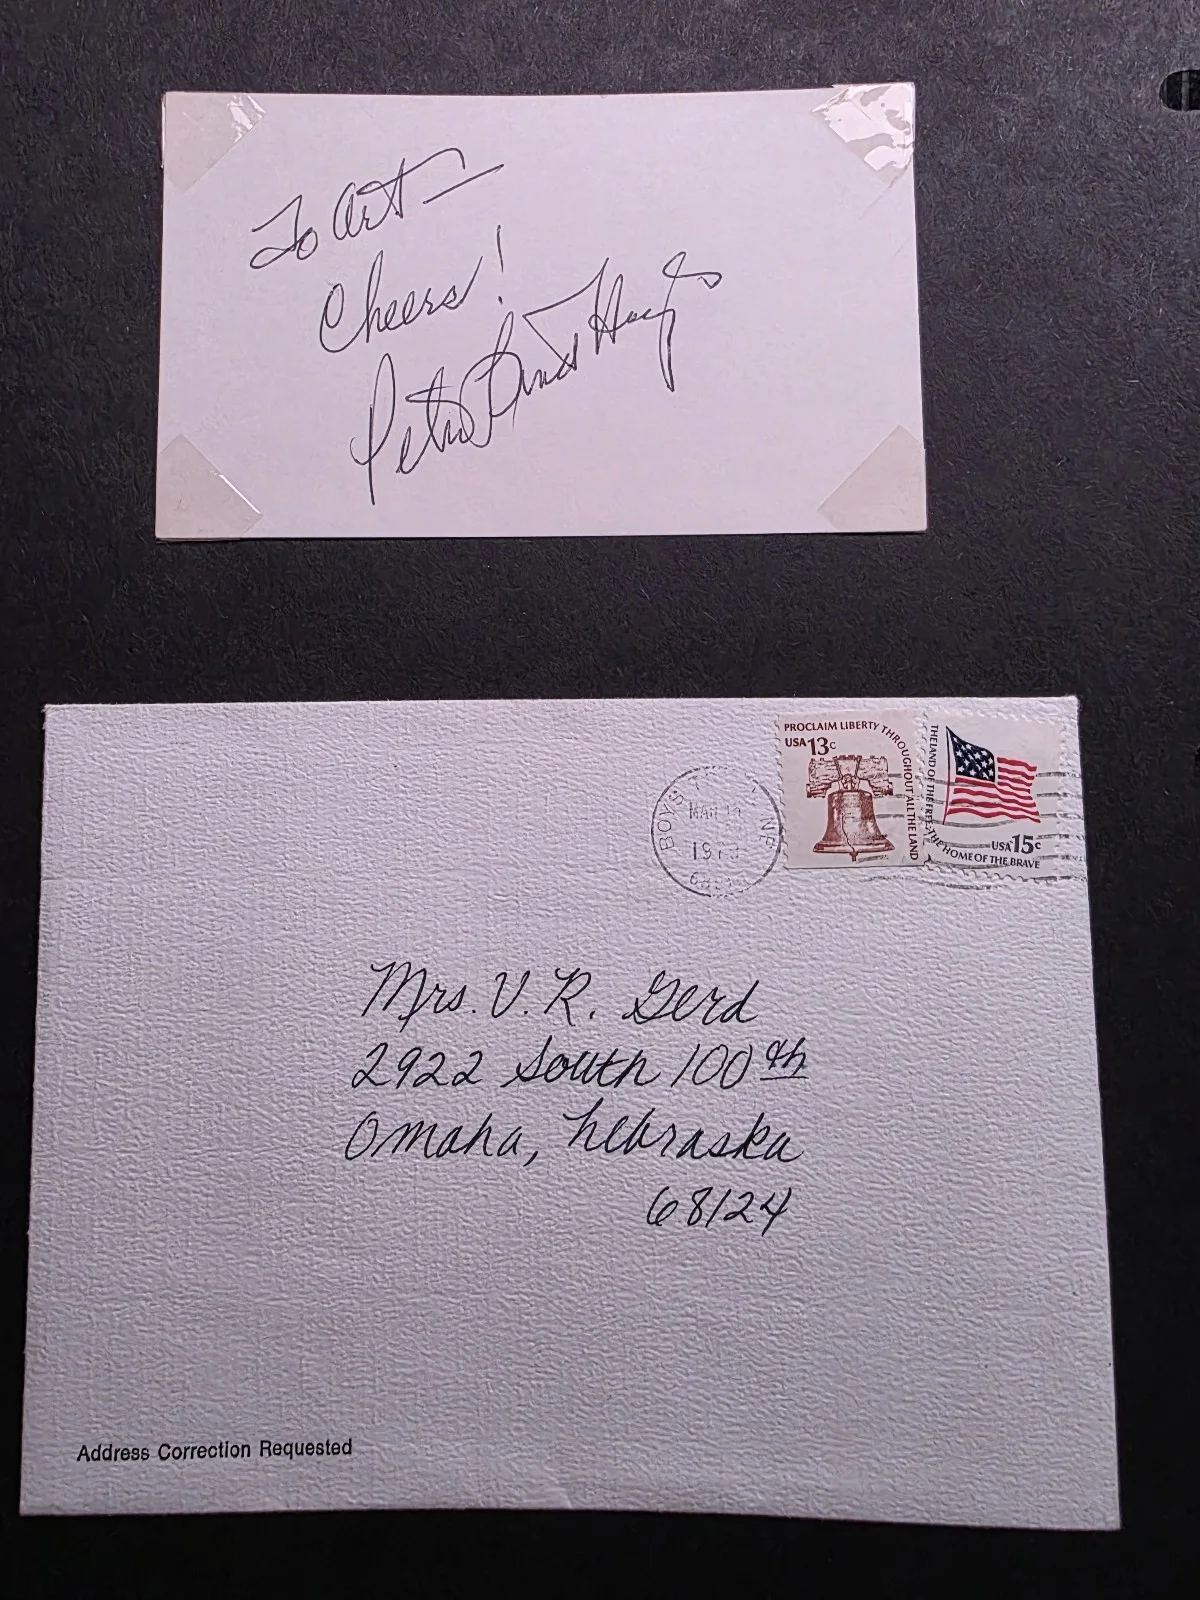 To Art —
Cheers!
Peter Lind Hayes
PROCLAIM LIBERTY THROUGHOUT ALL THE LAND
USA 13c
THE LAND OF THE FREE THE HOME OF THE BRAVE
USA 15c
BOYS
NE
MAR
Mrs. V. R. Gerd
2922 South 100th
Omaha, Nebraska
68124
Address Correction Requested